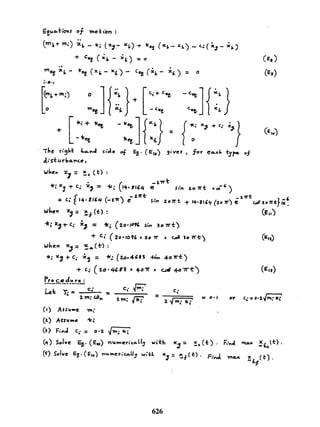 Equations of motion :
(m_b + m_i) ẍ_b - k_i (x_g - x_b) + k_eq (x_b - x_t) - c_i (ẋ_g - ẋ_b)
+ c_eq (ẋ_b - ẋ_t) = 0 (E8)
m_eq ẍ_t - k_eq (x_b - x_t) - c_eq (ẋ_b - ẋ_t) = 0 (E9)
i.e.,
[(m_b+m_i) 0; 0 m_eq] {ẍ_b; ẍ_t} + [c_i + c_eq - c_eq; - c_eq c_eq] {ẋ_b; ẋ_t}
+ [k_i + k_eq - k_eq; - k_eq k_eq] {x_b; x_t} = {k_i x_g + c_i ẋ_g; 0} (E10)
The right hand side of Eq. (E10) gives, for each type of
disturbance,
When x_g =
k_i x_g + c_i ẋ_g = k_i (14.8164 e^{-2πt} sin 20πt × 10^{-6})
+ c_i {14.8164 (-2π) e^{-2πt} sin 20πt + 14.8164 (20π) e^{-2πt} cos 20πt} 10^{-6} (E11)
When x_g =
k_i x_g + c_i ẋ_g = k_i (20.1096 sin 30πt)
+ c_i (20.1096 × 30π × cos 30πt) (E12)
When x_g =
k_i x_g + c_i ẋ_g = k_i (20.4683 sin 40πt)
+ c_i (20.4683 × 40π × cos 40πt) (E13)
Procedure :
Let = c_i / (2 m_i ω_n) = c_i √m_i / (2 m_i √k_i) = c_i / (2 √(m_i k_i)) = 0.1 or c_i = 0.2 √(m_i k_i)
(1) Assume m_i
(2) Assume k_i
(3) Find c_i = 0.2 √(m_i k_i)
(4) Solve Eq. (E10) numerically with x_g = . Find max
(5) Solve Eq. (E10) numerically with x_g = . Find max
626